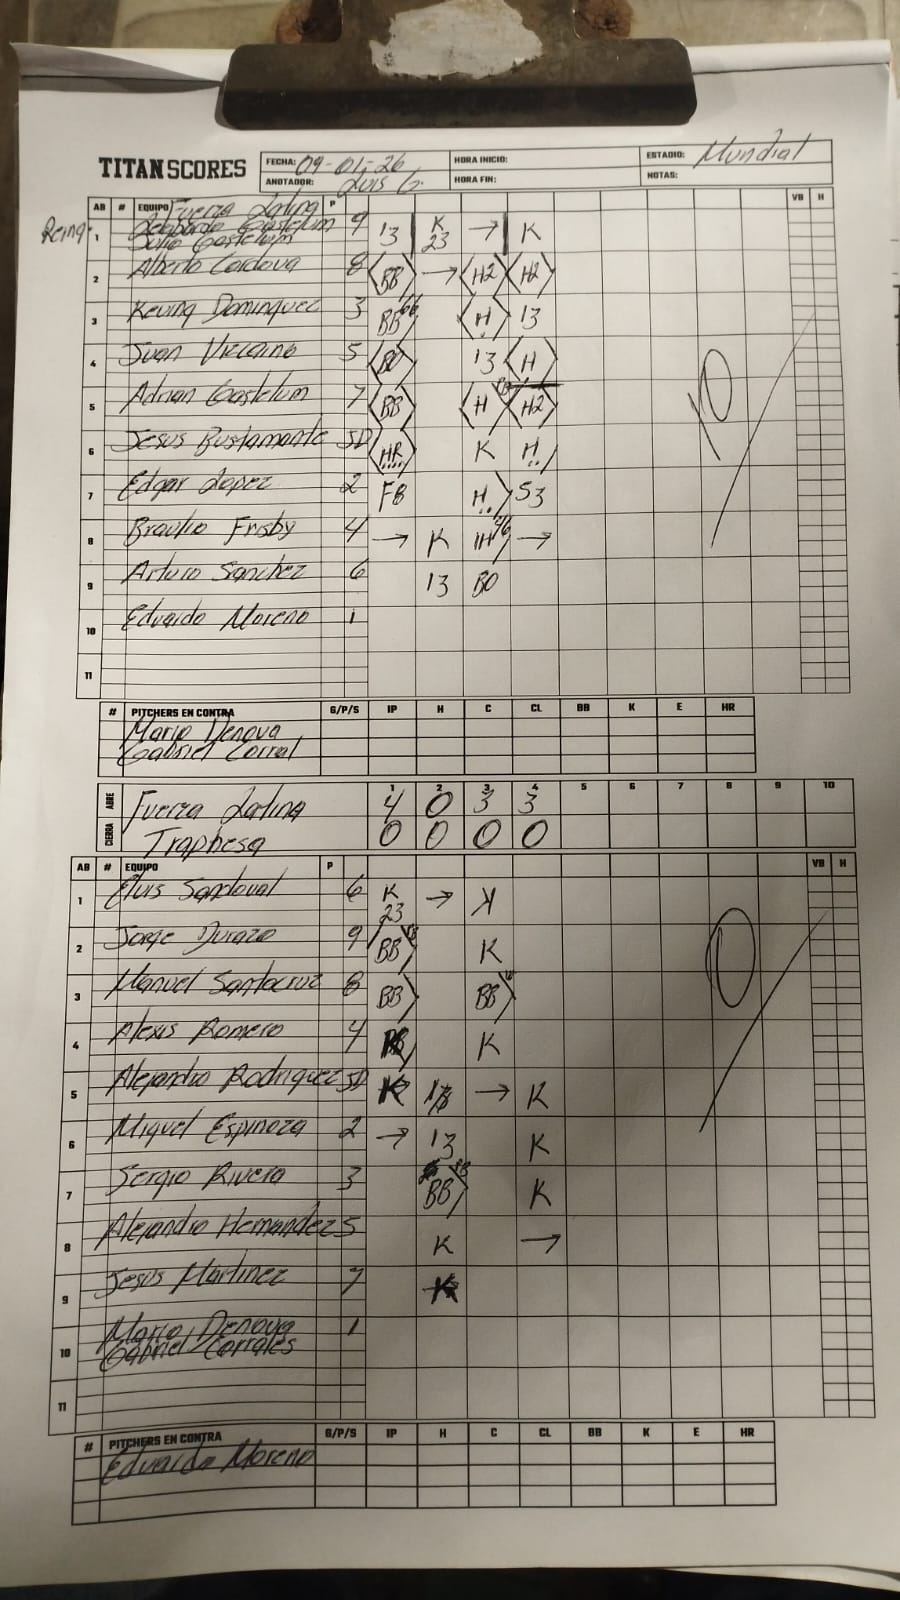 TITAN SCORES
FECHA: 09-01-26 HORA INICIO: ESTADIO: Mundial
ANOTADOR: Luis G. HORA FIN: NOTAS:
AB # EQUIPO Fuerza Latina P VB H
1 Gastelum 9 13 K 23 → K
Julio Gastelum
2 Alberto Cordova 8 BB → H2 H2
3 Keving Dominguez 3 BB 66 H 13
4 Juan Vizcaino 5 BO 13 H
5 Adrian Gastelum 7 BB H H2
6 Jesus Bustamante SD HR K H
7 Edgar Lopez 2 F8 H 53
8 Braulio Frisby 4 → K IH 46 →
9 Arturo Sanchez 6 13 BO
10 Eduardo Moreno 1
11
10
# PITCHERS EN CONTRA G/P/S IP H C CL BB K E HR
Mario Denova
Gabriel Corral
1 2 3 4 5 6 7 8 9 10
ABRE Fuerza Latina 4 0 3 3
CIERRA Traphesa 0 0 0 0
AB # EQUIPO P VB H
1 Eluis Sandoval 6 K 23 → K
2 Jorge Durazo 9 BB K
3 Manuel Santacruz 8 BB BB
4 Alexis Romero 4 K
5 Alejandro Rodriguez SD K → K
6 Miguel Espinoza 2 → 13 K
7 Sergio Rivera 3 BB K
8 Alejandro Hernandez 5 K →
9 Jesus Martinez 7 K
10 Mario Denova 1
Gabriel Corrales
11
0
# PITCHERS EN CONTRA G/P/S IP H C CL BB K E HR
Eduardo Moreno